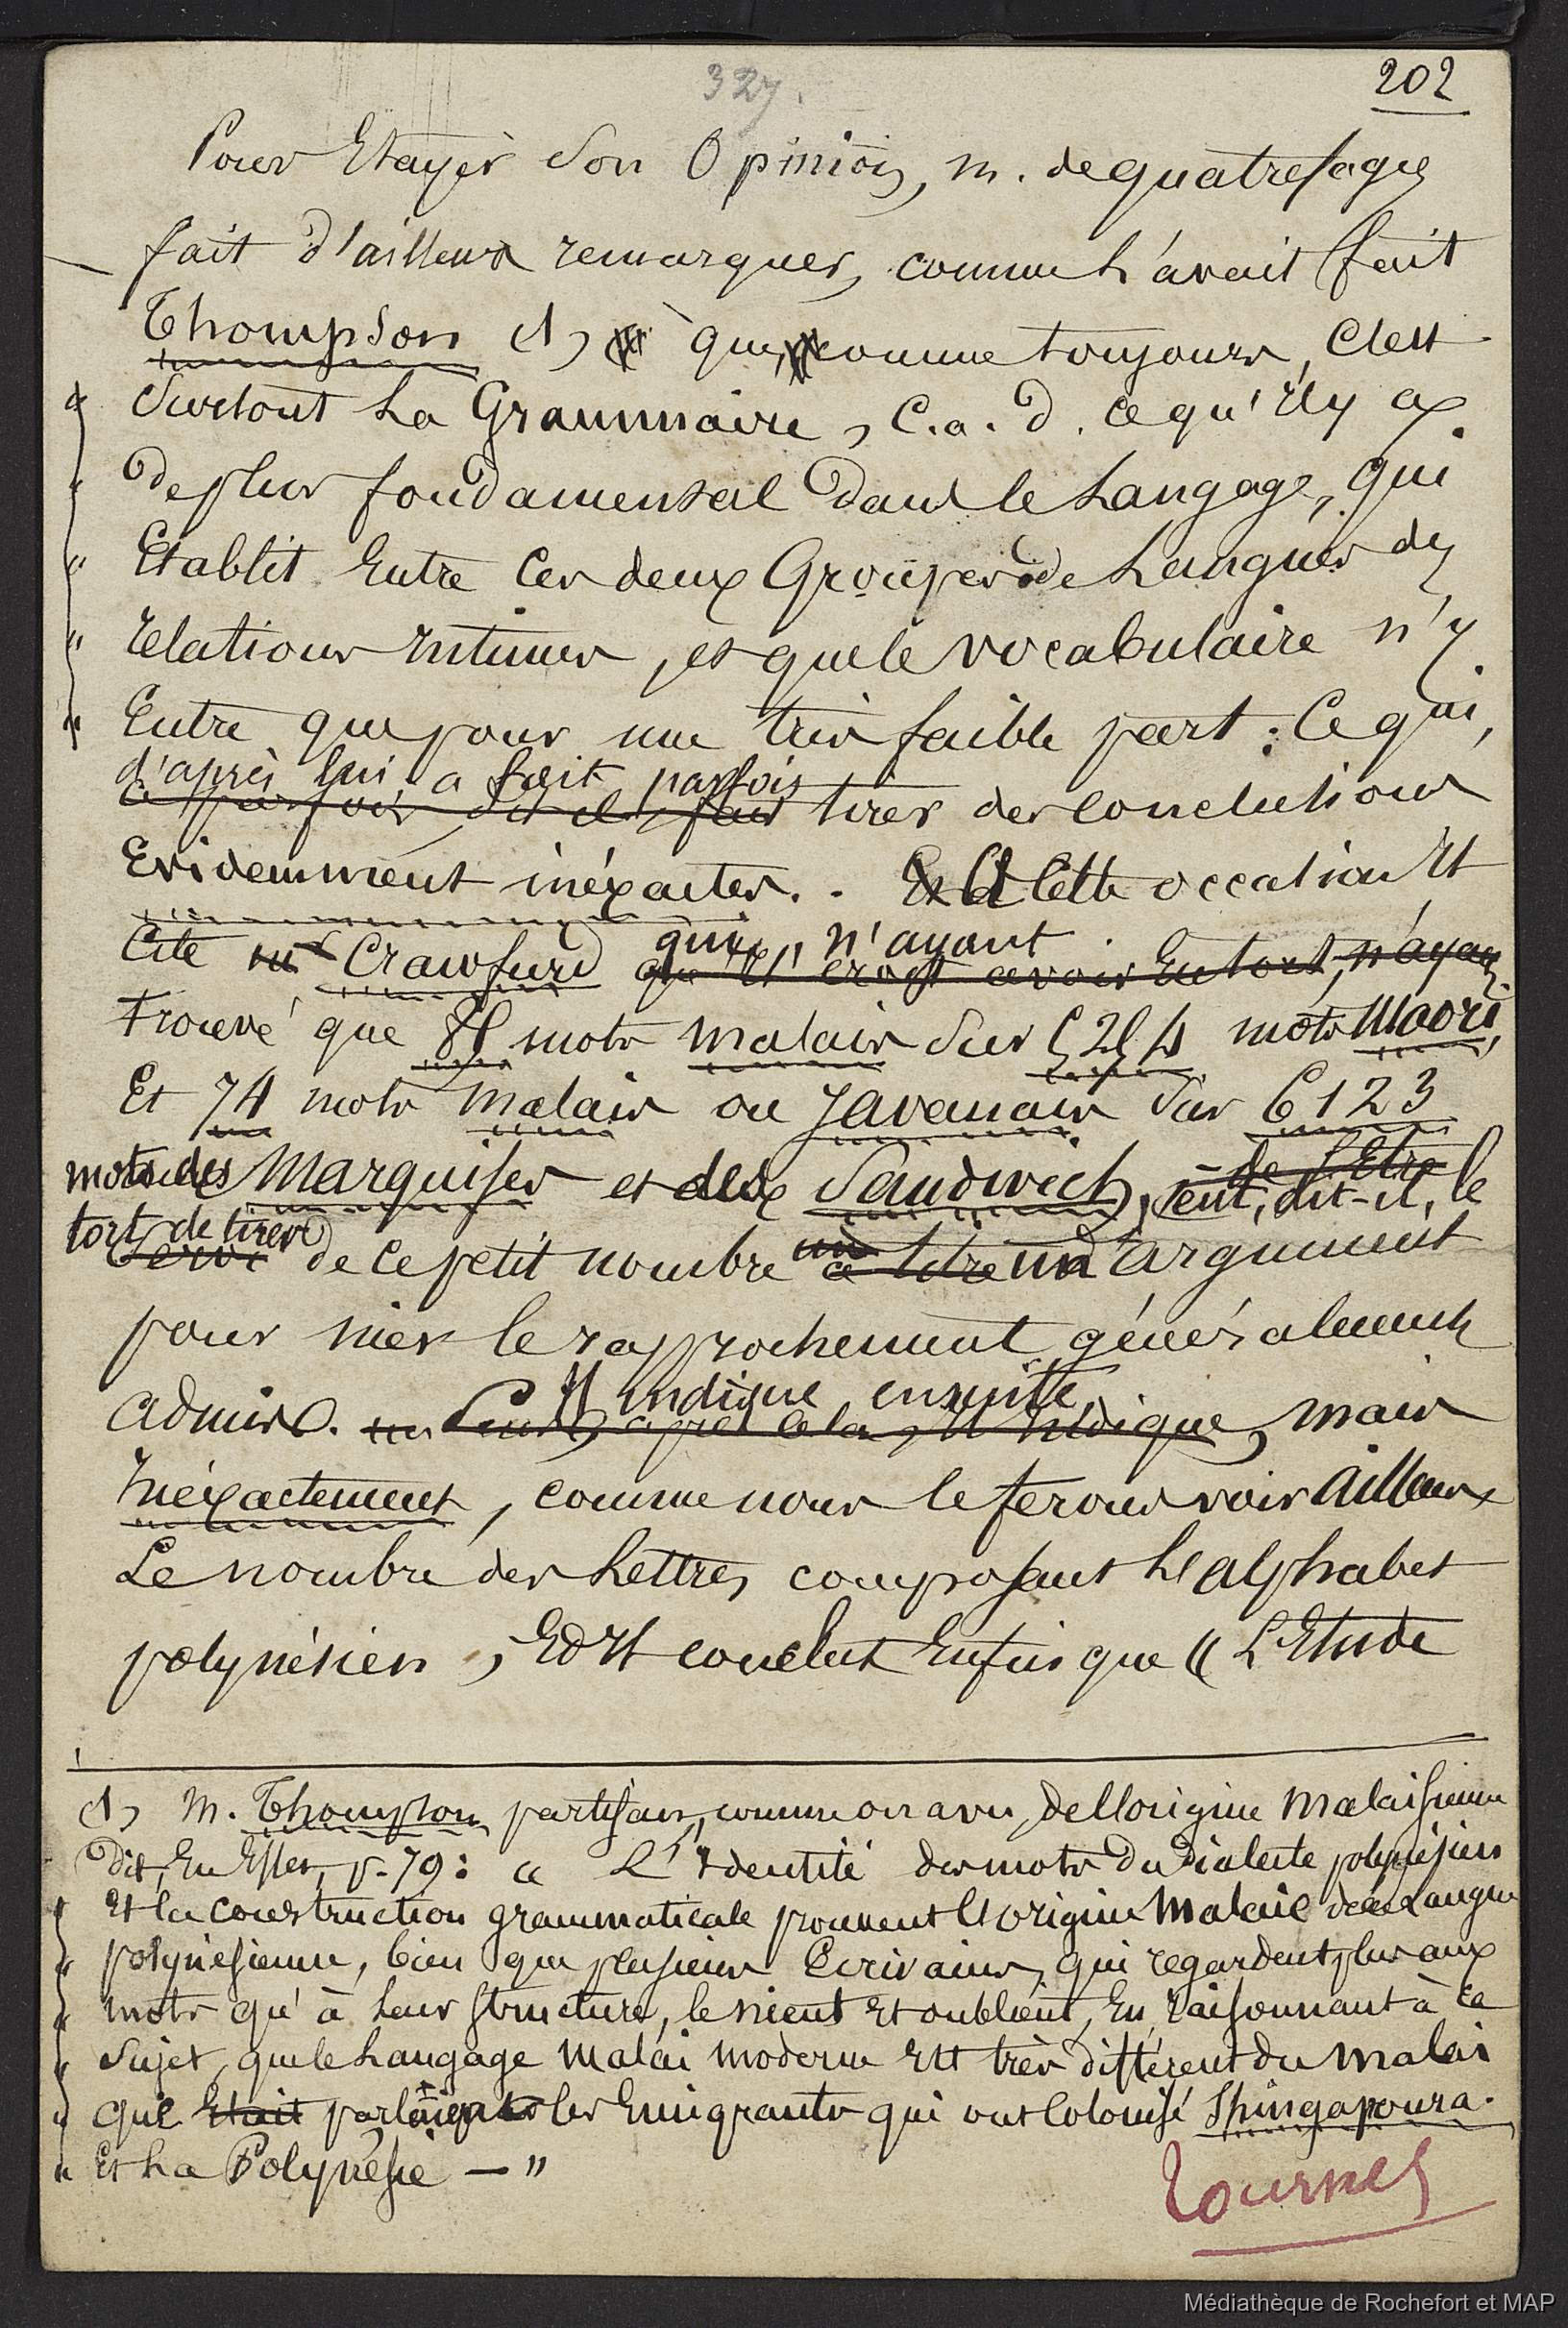 327.
202
Pour Etayer Son Opinion, m. de quatrefages
fait d'ailleurs remarquer, comme L'avait fait
Thompson (1) que, comme toujours, C'est
Surtout La Grammaire, C.a.d. ce qu'il y a
de plus fondamental dans le Langage, qui
Etablit Entre Ces deux Groupes de Langues des
relations intimes, et que le vocabulaire n'y
Entre que pour une très faible part : Ce qui,
d'après lui a fait parfois
Ce parfois, dit il, fait tirer des Conclusions
Evidemment inéxactes. . Et A Cette occasion Il
qui, n'ayant
Cite Crawfurd qu'il croit avoir Eu tort, n'ayant
Trouvé que 85 mots malais Sur 5254 mots Maori,
Et 74 mots Malais ou Javanais Sur 6123
mots des Marquises et des Sandwich, eut, dit-il, le
de L'Etre
tort de tirer de Ce petit nombre à titre un argument
pour nier le rapprochement généralement
Il indique ensuite
admis. Puis, après cela, Il Indique, mais
Inéxactement, comme nous le ferons voir Ailleurs
Le nombre des Lettres composant L'alphabet
polynésien, Et Il conclut Enfin que « L'Etude
(1) M. Thompson partisan, comme on a vu, de L'origine Malaisienne
Dit, En Effet, p. 79 : « L'Identité des mots du Dialecte polynésien
Et la construction grammaticale prouvent L'origine Malaie des Langues
polynésiennes, bien que plusieurs Ecrivains, qui regardent plus aux
mots qu'à Leur Structure, le nient Et oublient, En raisonnant à ce
Sujet, que le Langage Malai moderne Est très différent du Malai
que Etait parlaient les Emigrants qui ont Colonisé Shingapoura.
Et La Polynésie — "
Tournez
Médiathèque de Rochefort et MAP